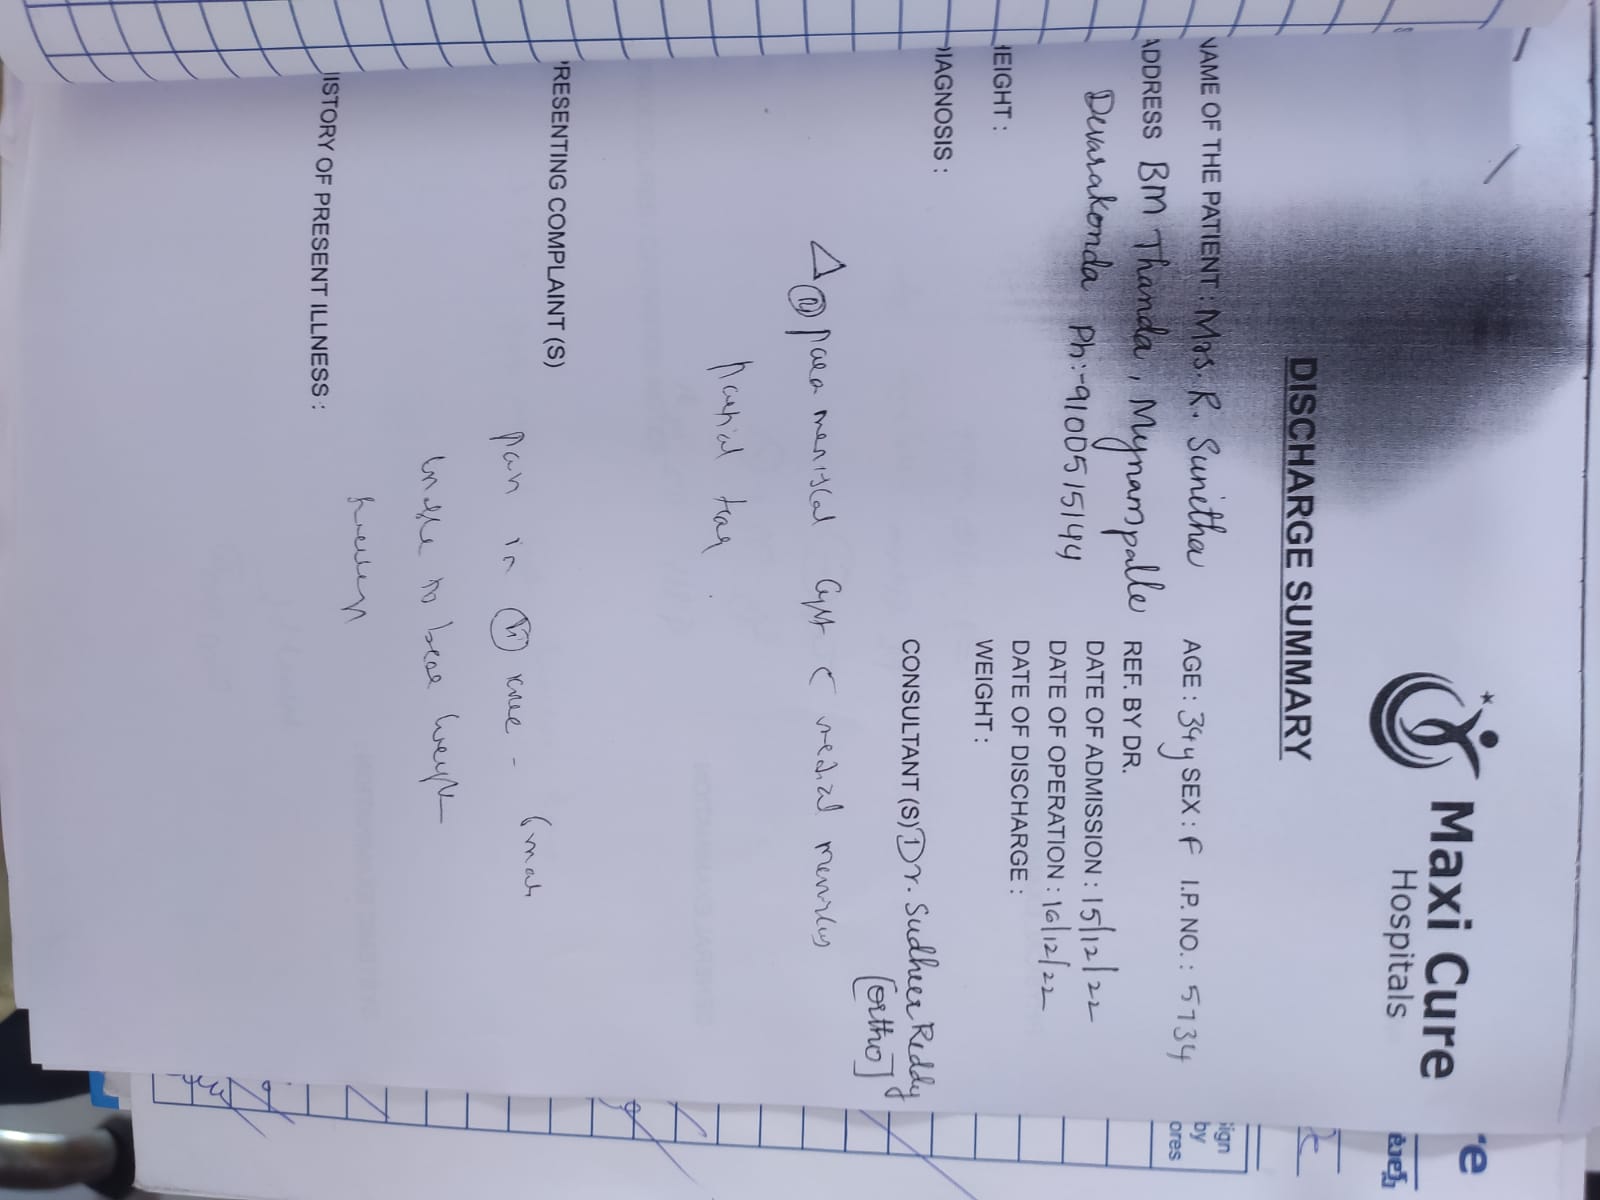 Maxi Cure
Hospitals
DISCHARGE SUMMARY
NAME OF THE PATIENT : Mrs. R. Sunitha AGE : 34y SEX : F I.P. NO. : 5734
ADDRESS BM Thanda, Mynampalle REF. BY DR.
Devarakonda Ph:-9100515144 DATE OF ADMISSION : 15/12/22
DATE OF OPERATION : 16/12/22
DATE OF DISCHARGE :
HEIGHT : WEIGHT :
DIAGNOSIS : CONSULTANT (S) Dr. Sudheer Reddy
[ortho]
Δ para meniscal cyst c medial meniscus
partial tear
PRESENTING COMPLAINT (S)
pain in knee -
to bear weight
HISTORY OF PRESENT ILLNESS :
ign
by
ores
re